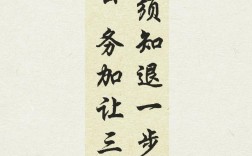 须知退一步
务加让三